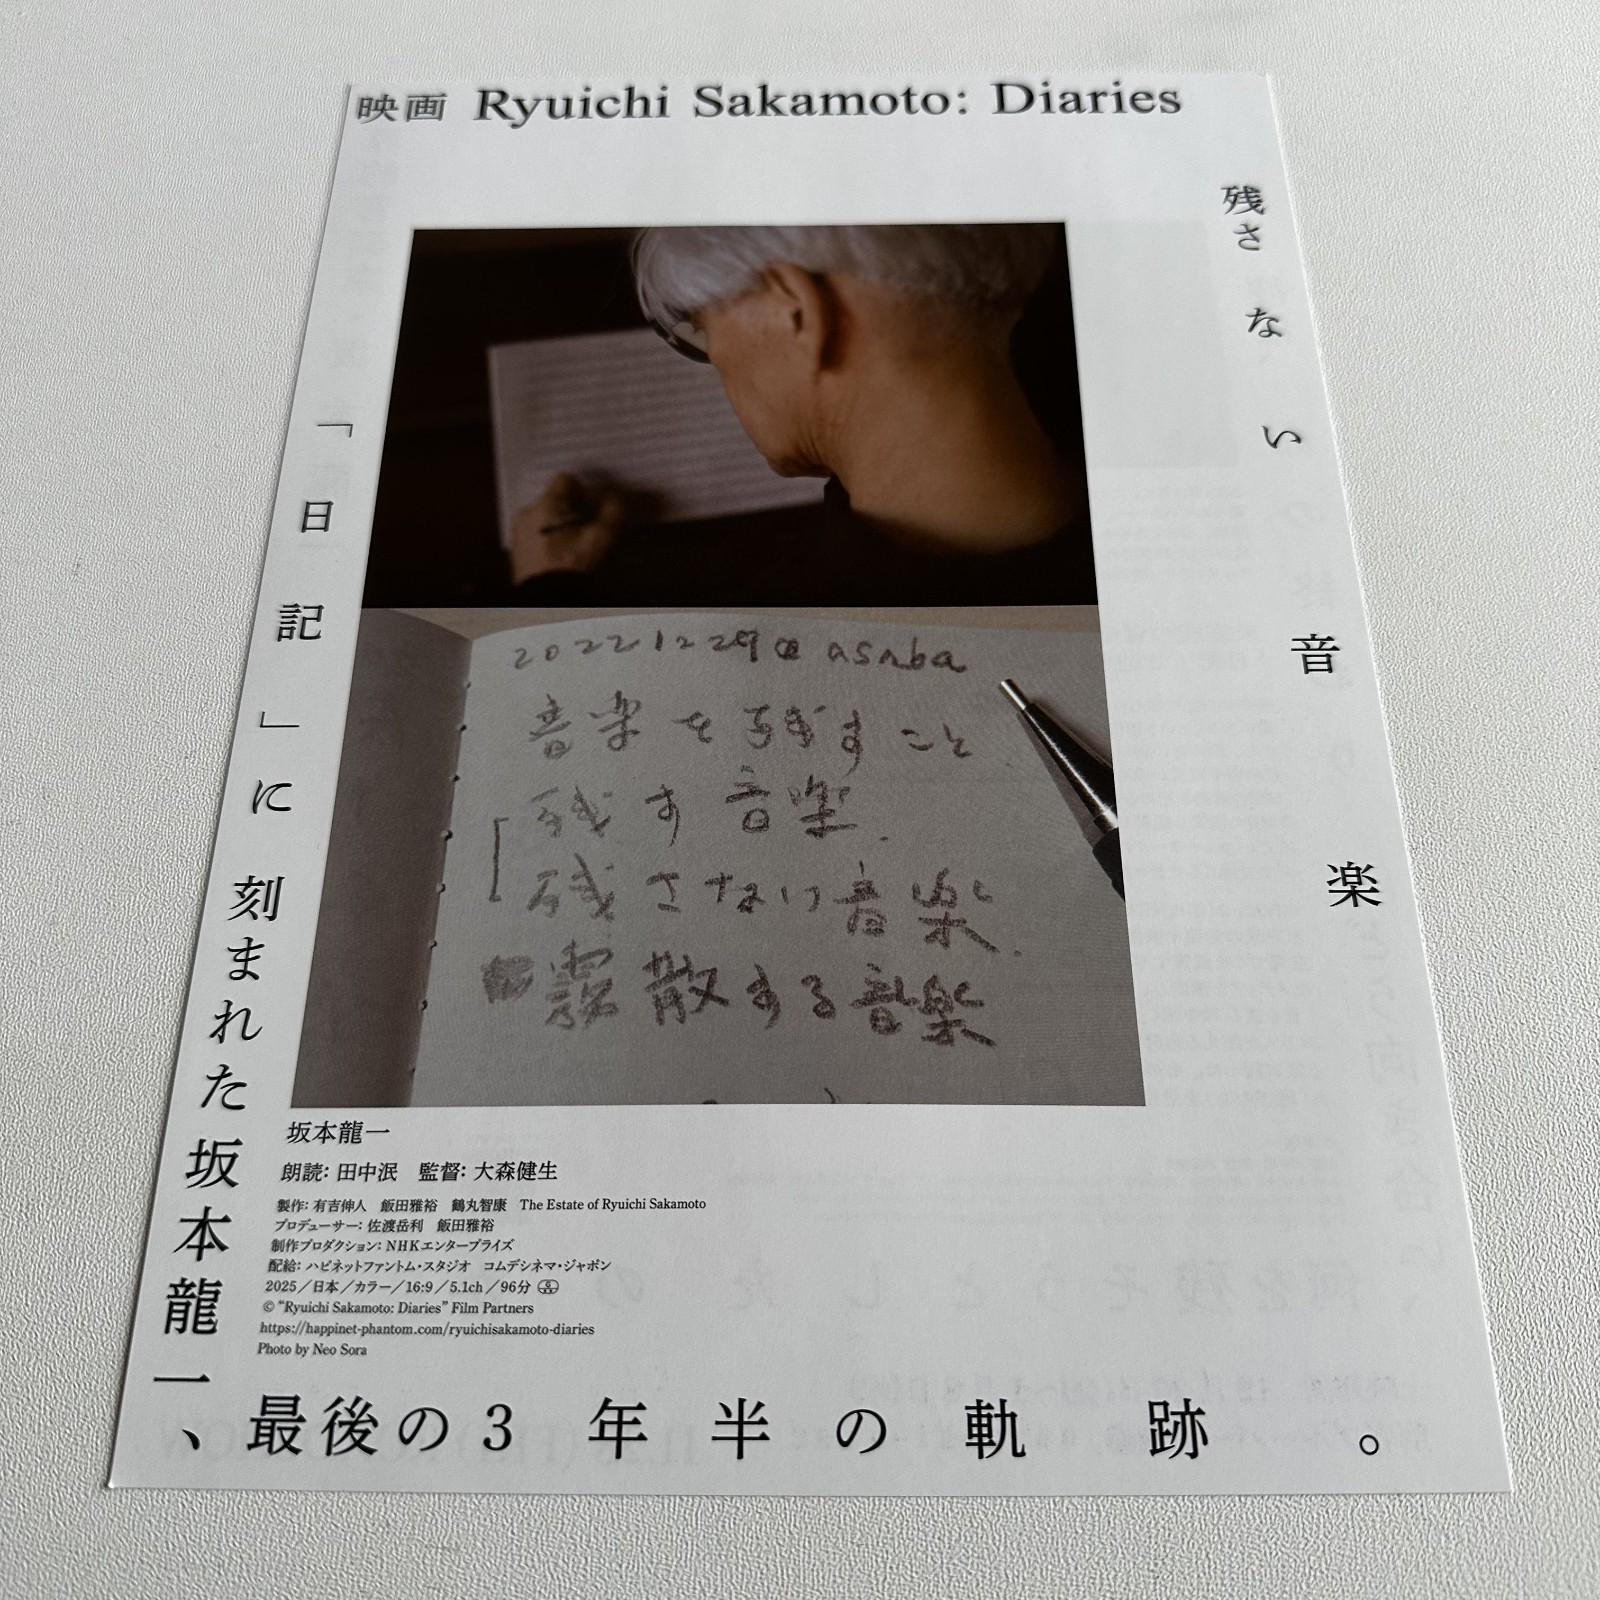 映画 Ryuichi Sakamoto: Diaries
残さない音楽
「日記」に刻まれた坂本龍一、最後の3年半の軌跡。
20221229@asaba
音楽を残すこと
残す音楽.
残さない音楽.
霧散する音楽
坂本龍一
朗読: 田中泯 監督: 大森健生
製作: 有吉伸人 飯田雅裕 鶴丸智康 The Estate of Ryuichi Sakamoto
プロデューサー: 佐渡岳利 飯田雅裕
制作プロダクション: NHKエンタープライズ
配給: ハピネットファントム・スタジオ コムデシネマ・ジャポン
2025/日本/カラー/16:9/5.1ch/96分 G
©“Ryuichi Sakamoto: Diaries” Film Partners
https://happinet-phantom.com/ryuichisakamoto-diaries
Photo by Neo Sora